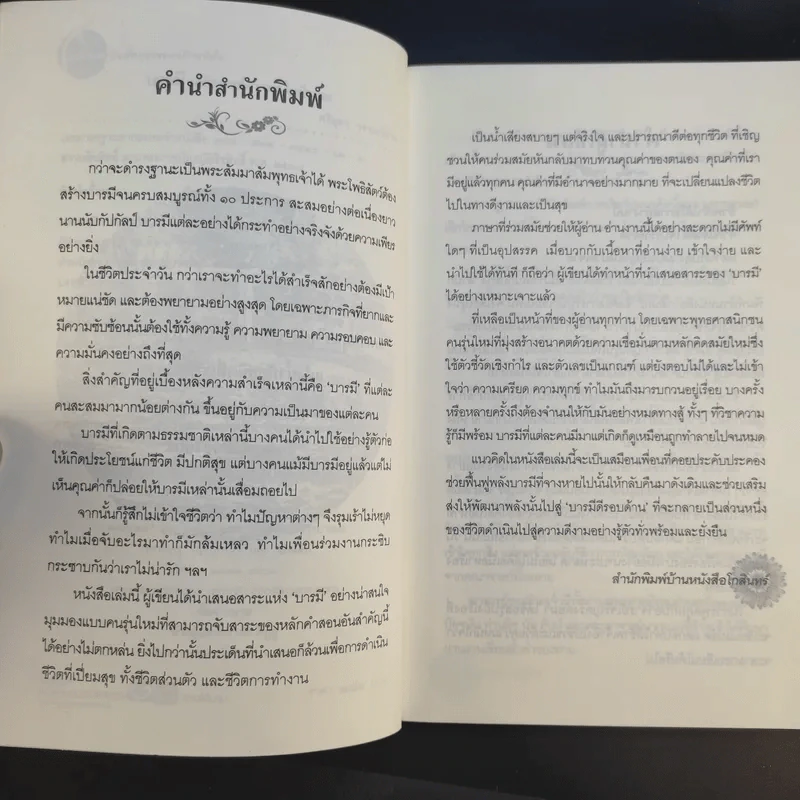 คำนำสำนักพิมพ์
กว่าจะดำรงฐานะเป็นพระสัมมาสัมพุทธเจ้าได้ พระโพธิสัตว์ต้อง
สร้างบารมีจนครบสมบูรณ์ทั้ง ๑๐ ประการ สะสมอย่างต่อเนื่องยาว
นานนับกัปกัลป์ บารมีแต่ละอย่างได้กระทำอย่างจริงจังด้วยความเพียร
อย่างยิ่ง
ในชีวิตประจำวัน กว่าเราจะทำอะไรได้สำเร็จสักอย่างต้องมีเป้า
หมายแน่ชัด และต้องพยายามอย่างสูงสุด โดยเฉพาะภารกิจที่ยากและ
มีความซับซ้อนนั้นต้องใช้ทั้งความรู้ ความพยายาม ความรอบคอบ และ
ความมั่นคงอย่างถึงที่สุด
สิ่งสำคัญที่อยู่เบื้องหลังความสำเร็จเหล่านี้คือ 'บารมี' ที่แต่ละ
คนสะสมมามากน้อยต่างกัน ขึ้นอยู่กับความเป็นมาของแต่ละคน
บารมีที่เกิดตามธรรมชาติเหล่านี้บางคนได้นำไปใช้อย่างรู้ตัวก่อ
ให้เกิดประโยชน์แก่ชีวิต มีปกติสุข แต่บางคนแม้มีบารมีอยู่แล้วแต่ไม่
เห็นคุณค่าก็ปล่อยให้บารมีเหล่านั้นเสื่อมถอยไป
จากนั้นก็รู้สึกไม่เข้าใจชีวิตว่า ทำไมปัญหาต่างๆ จึงรุมเร้าไม่หยุด
ทำไมเมื่อจับอะไรมาทำก็มักล้มเหลว ทำไมเพื่อนร่วมงานกระซิบ
กระซาบกันว่าเราไม่น่ารัก ฯลฯ
หนังสือเล่มนี้ ผู้เขียนได้นำเสนอสาระแห่ง 'บารมี' อย่างน่าสนใจ
มุมมองแบบคนรุ่นใหม่ที่สามารถจับสาระของหลักคำสอนอันสำคัญนี้
ได้อย่างไม่ตกหล่น ยิ่งไปกว่านั้นประเด็นที่นำเสนอก็ล้วนเพื่อการดำเนิน
ชีวิตที่เปี่ยมสุข ทั้งชีวิตส่วนตัว และชีวิตการทำงาน
เป็นน้ำเสียงสบายๆ แต่จริงใจ และปรารถนาดีต่อทุกชีวิต ที่เชิญ
ชวนให้คนร่วมสมัยหันกลับมาทบทวนคุณค่าของตนเอง คุณค่าที่เรา
มีอยู่แล้วทุกคน คุณค่าที่มีอำนาจอย่างมากมาย ที่จะเปลี่ยนแปลงชีวิต
ไปในทางดีงามและเป็นสุข
ภาษาที่ร่วมสมัยช่วยให้ผู้อ่าน อ่านงานนี้ได้อย่างสะดวกไม่มีศัพท์
ใดๆ ที่เป็นอุปสรรค เมื่อบวกกับเนื้อหาที่อ่านง่าย เข้าใจง่าย และ
นำไปใช้ได้ทันที ก็ถือว่า ผู้เขียนได้ทำหน้าที่นำเสนอสาระของ 'บารมี'
ได้อย่างเหมาะเจาะแล้ว
ที่เหลือเป็นหน้าที่ของผู้อ่านทุกท่าน โดยเฉพาะพุทธศาสนิกชน
คนรุ่นใหม่ที่มุ่งสร้างอนาคตด้วยความเชื่อมั่นตามหลักคิดสมัยใหม่ซึ่ง
ใช้ตัวชี้วัดเชิงกำไร และตัวเลขเป็นเกณฑ์ แต่ยังตอบไม่ได้และไม่เข้า
ใจว่า ความเครียด ความทุกข์ ทำไมมันถึงมารบกวนอยู่เรื่อย บางครั้ง
หรือหลายครั้งถึงต้องจำนนให้กับมันอย่างหมดทางสู้ ทั้งๆ ที่วิชาความ
รู้ก็มีพร้อม บารมีที่แต่ละคนมีมาแต่เกิดก็ดูเหมือนถูกทำลายไปจนหมด
แนวคิดในหนังสือเล่มนี้จะเป็นเสมือนเพื่อนที่คอยประคับประคอง
ช่วยฟื้นฟูพลังบารมีที่จางหายไปนั้นให้กลับคืนมาดังเดิมและช่วยเสริม
ส่งให้พัฒนาพลังนั้นไปสู่ 'บารมีดีรอบด้าน' ที่จะกลายเป็นส่วนหนึ่ง
ของชีวิตดำเนินไปสู่ความดีงามอย่างรู้ตัวทั่วพร้อมและยั่งยืน
สำนักพิมพ์บ้านหนังสือโกสินทร์